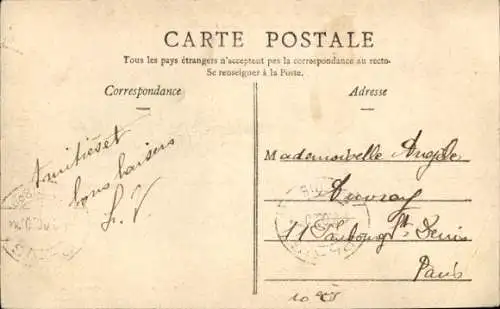 CARTE POSTALE
Tous les pays étrangers n'acceptent pas la correspondance au recto-
Se renseigner à la Poste.
Correspondance
Adresse
Amitiés et
bons baisers
L. V
Mademoiselle Angèle
Auvray
11 Faubourg St Denis
Paris